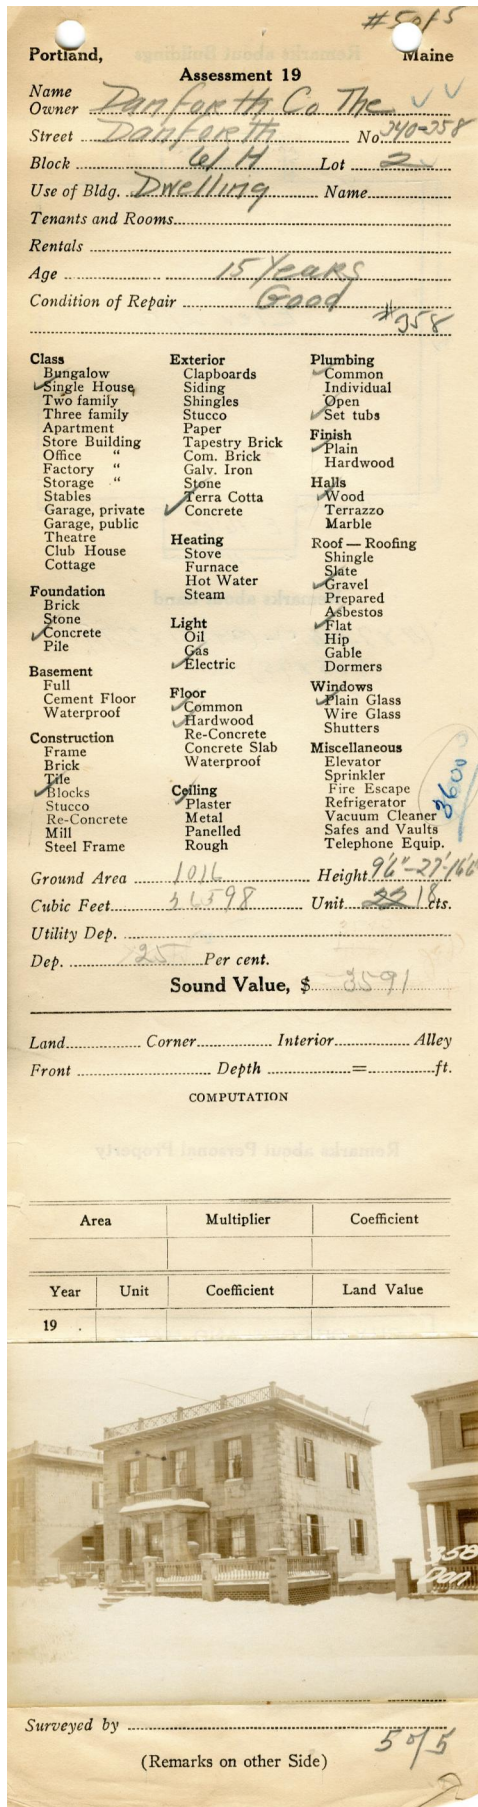 #5 of 5
Portland, Maine
Assessment 19
Name
Owner Danforth Co The
Street Danforth No. 340-358
Block 61 H Lot 2
Use of Bldg. Dwelling Name
Tenants and Rooms
Rentals
Age 15 Years
Condition of Repair Good
#358
Class
Bungalow
Single House
Two family
Three family
Apartment
Store Building
Office "
Factory "
Storage "
Stables
Garage, private
Garage, public
Theatre
Club House
Cottage
Foundation
Brick
Stone
Concrete
Pile
Basement
Full
Cement Floor
Waterproof
Construction
Frame
Brick
Tile
Blocks
Stucco
Re-Concrete
Mill
Steel Frame
Exterior
Clapboards
Siding
Shingles
Stucco
Paper
Tapestry Brick
Com. Brick
Galv. Iron
Stone
Terra Cotta
Concrete
Heating
Stove
Furnace
Hot Water
Steam
Light
Oil
Gas
Electric
Floor
Common
Hardwood
Re-Concrete
Concrete Slab
Waterproof
Ceiling
Plaster
Metal
Panelled
Rough
Plumbing
Common
Individual
Open
Set tubs
Finish
Plain
Hardwood
Halls
Wood
Terrazzo
Marble
Roof — Roofing
Shingle
Slate
Gravel
Prepared
Asbestos
Flat
Hip
Gable
Dormers
Windows
Plain Glass
Wire Glass
Shutters
Miscellaneous
Elevator
Sprinkler
Fire Escape
Refrigerator
Vacuum Cleaner
Safes and Vaults
Telephone Equip.
3600
Ground Area 1016 Height
Cubic Feet 26598 Unit 22 18 cts.
Utility Dep.
Dep. 25 Per cent.
Sound Value, $ 3591
Land Corner Interior Alley
Front Depth = ft.
COMPUTATION
Area Multiplier Coefficient
Year Unit Coefficient Land Value
19
358
Dan
Surveyed by
5 of 5
(Remarks on other Side)